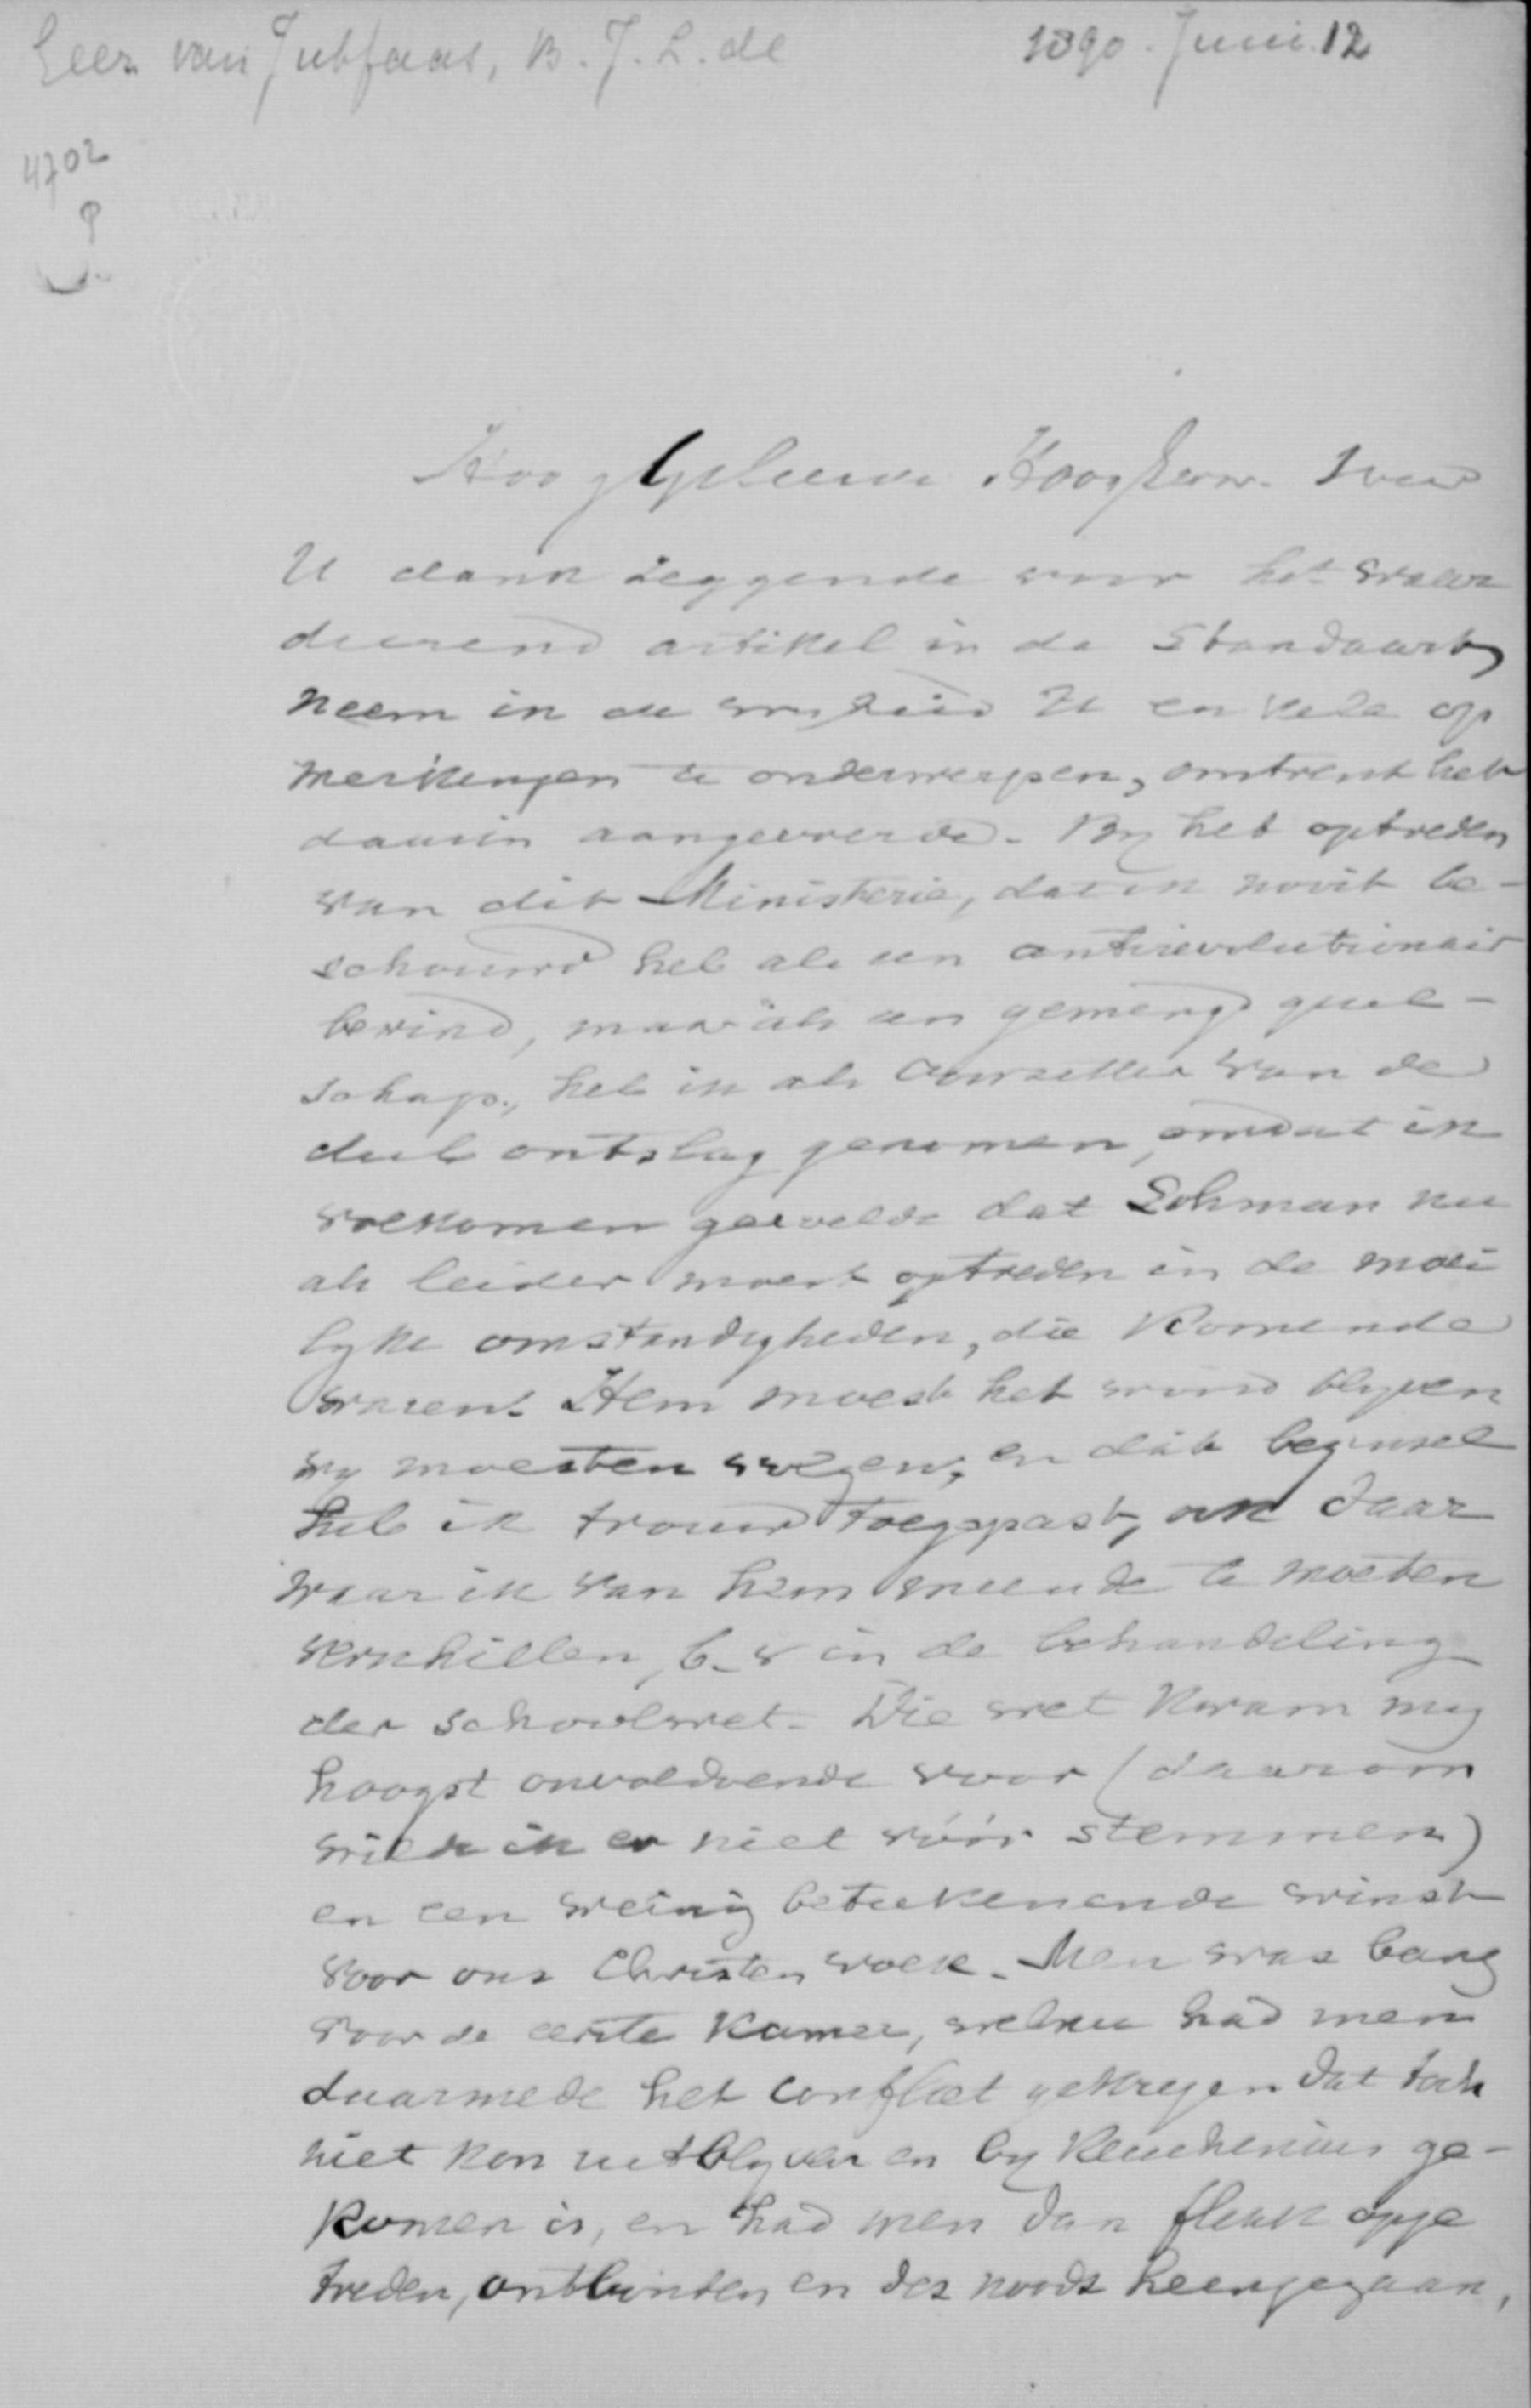 Geer van Jutfaas, B. J. L. de 1890. Juni. 12
4702
Hoog Geleerde Hoog Eerw. Heer
U dank zeggende voor het waar
deerend artikel in de Standaart,
neem ik de vryheid U enkele op
merkingen te onderwerpen, omtrent het
daarin aangevoerde. By het optreden
van dit Ministerie, dat ik nooit be-
schouwd heb als een antirevolutionair
bewind, maar als een gemengd gezel-
schap, heb ik als voorzitter van de
club ontslag genomen, omdat ik
volkomen gevoelde dat Lohman nu
als leider moest optreden in de moei
lyke omstandigheden, die komende
waren. Hem moest het woord blyven
wy moesten volgen, en dat beginsel
heb ik trouw toegepast, ook daar
waar ik van hem meende te moeten
verschillen, b.v in de behandeling
der schoolwet. Die wet kwam my
hoogst onvoldoende voor (daarom
wilde ik er niet vóór stemmen)
en een weinig beteekenende winst
voor ons Christen volk. Men was bang
voor de eerste Kamer, welnu had men
daarmede het conflict gekregen dat toch
niet kon uitblyven en by Keuchenius ge-
komen is, en had men dan flink opge
treden, ontbinden en des noods heengegaan,